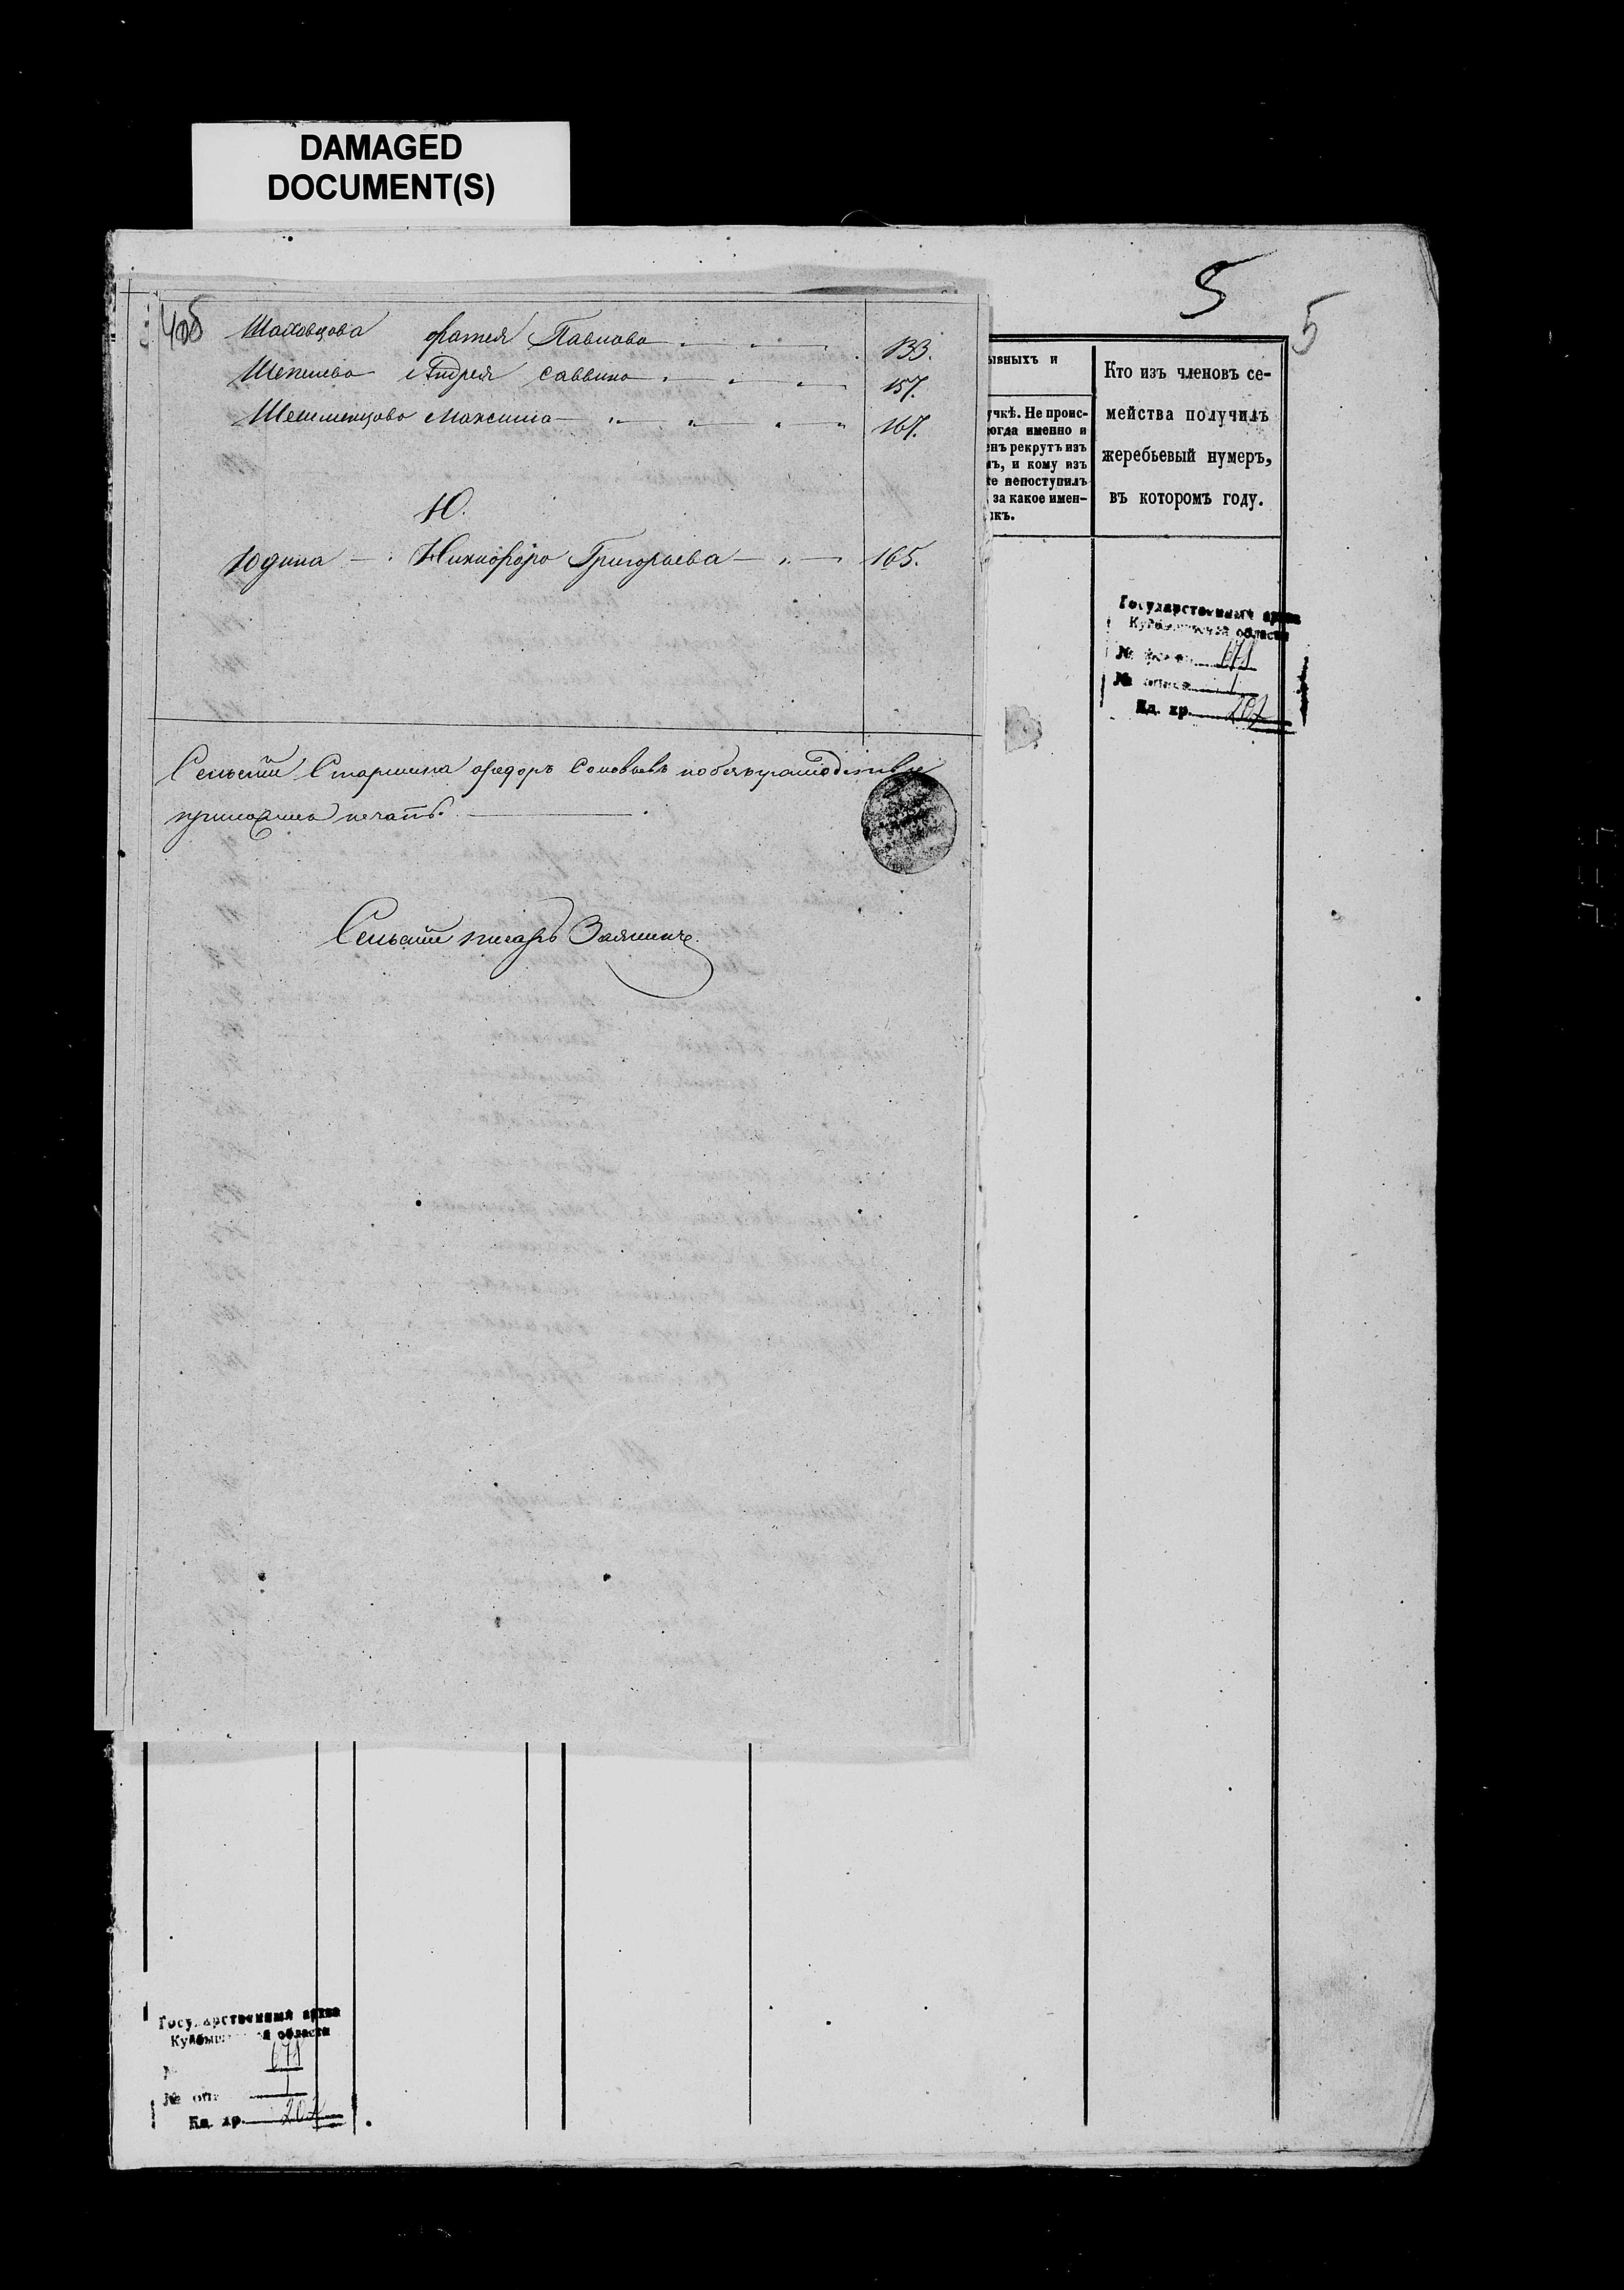 DAMAGED
DOCUMENT(S)
5
5
405
Шаховцова Фатея Павлова 133.
Шепелева Андрея Саввина 157.
Шешменцова Максима 167.
Ю.
Юдина Никифора Григорьева 165.
Сельский Старшина Федоръ Соловьевъ
приложилъ печать.
Сельский писарь
ывныхъ и
учкѣ. Не проис-
огда именно и
енъ рекрутъ изъ
ъ, и кому изъ
е непоступилъ
, за какое имен-
икъ.
Кто изъ членовъ се-
мейства получилъ
жеребьевый нумеръ,
въ которомъ году.
Государственный архив
Куйбышевской области
№ 671
№ описи 1
Ед. хр. 207
Государственный архив
Куйбышевской области
671
№ оп. 1
Ед. хр. 207